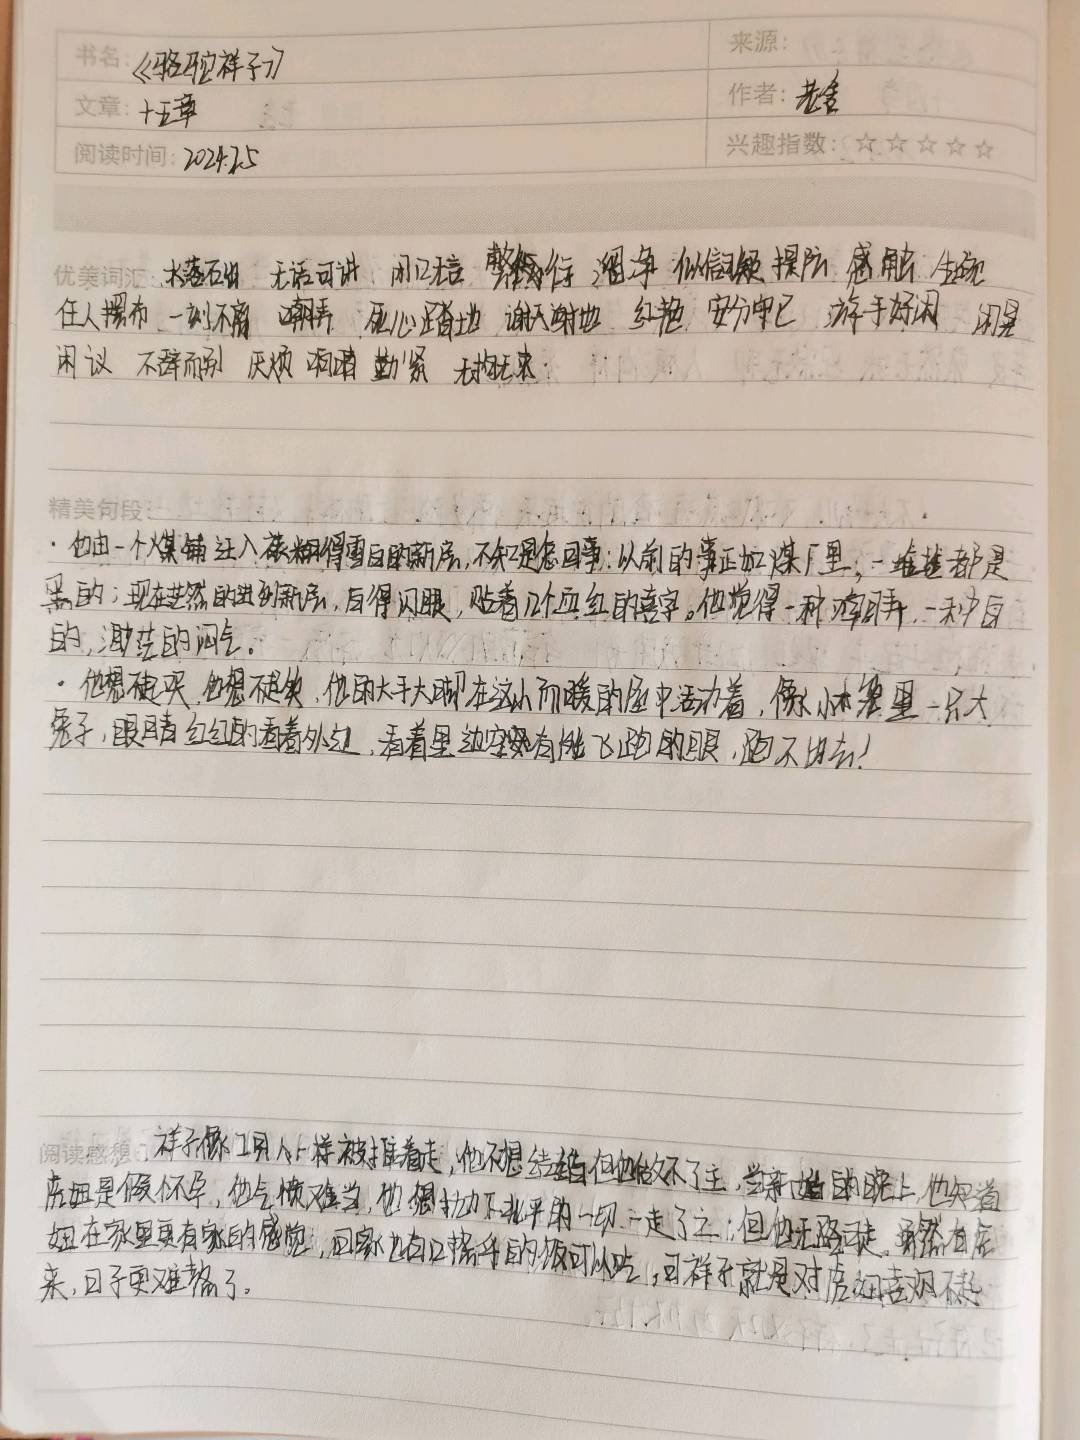 书名：《骆驼祥子》
来源：
文章：十五章
作者：老舍
阅读时间：2024.2.5
兴趣指数：☆☆☆☆☆
优美词汇：水落石出 无话可讲 闭口无言 似信似疑 提防 感触
任人摆布 一刻不离 嘲弄 死心踏地 谢天谢地 红艳 安分守己 游手好闲 闲是
闲议 不辞而别 厌烦 勤紧 无拘无束
精美句段：
·他由一个煤铺迁入裱糊得雪白的新房，不知是怎回事：以前的事正如煤厂里，一堆堆都是
黑的；现在茫然的进到新房，白得闪眼，贴着几个血红的喜字。他觉得一种嘲弄，一种白
的，渺茫的闷气。
·他想不起哭，他想不起笑，他的大手大脚在这小而暖的屋中活动着，像小木笼里一只大
兔子，眼睛红红的看着外边，看着里边，空有能飞跑的腿，跑不出去！
阅读感想：祥子像工具人一样被推着走，他不想结婚但他做不了主，当新婚的晚上，他知道
虎妞是假怀孕，他气愤难当，他想抛下北平的一切一走了之，但他无路可走。虽然有虎
妞在家里更有家的感觉，回家也有口热乎的饭可以吃，可祥子就是对虎妞喜欢不起
来，日子更难熬了。